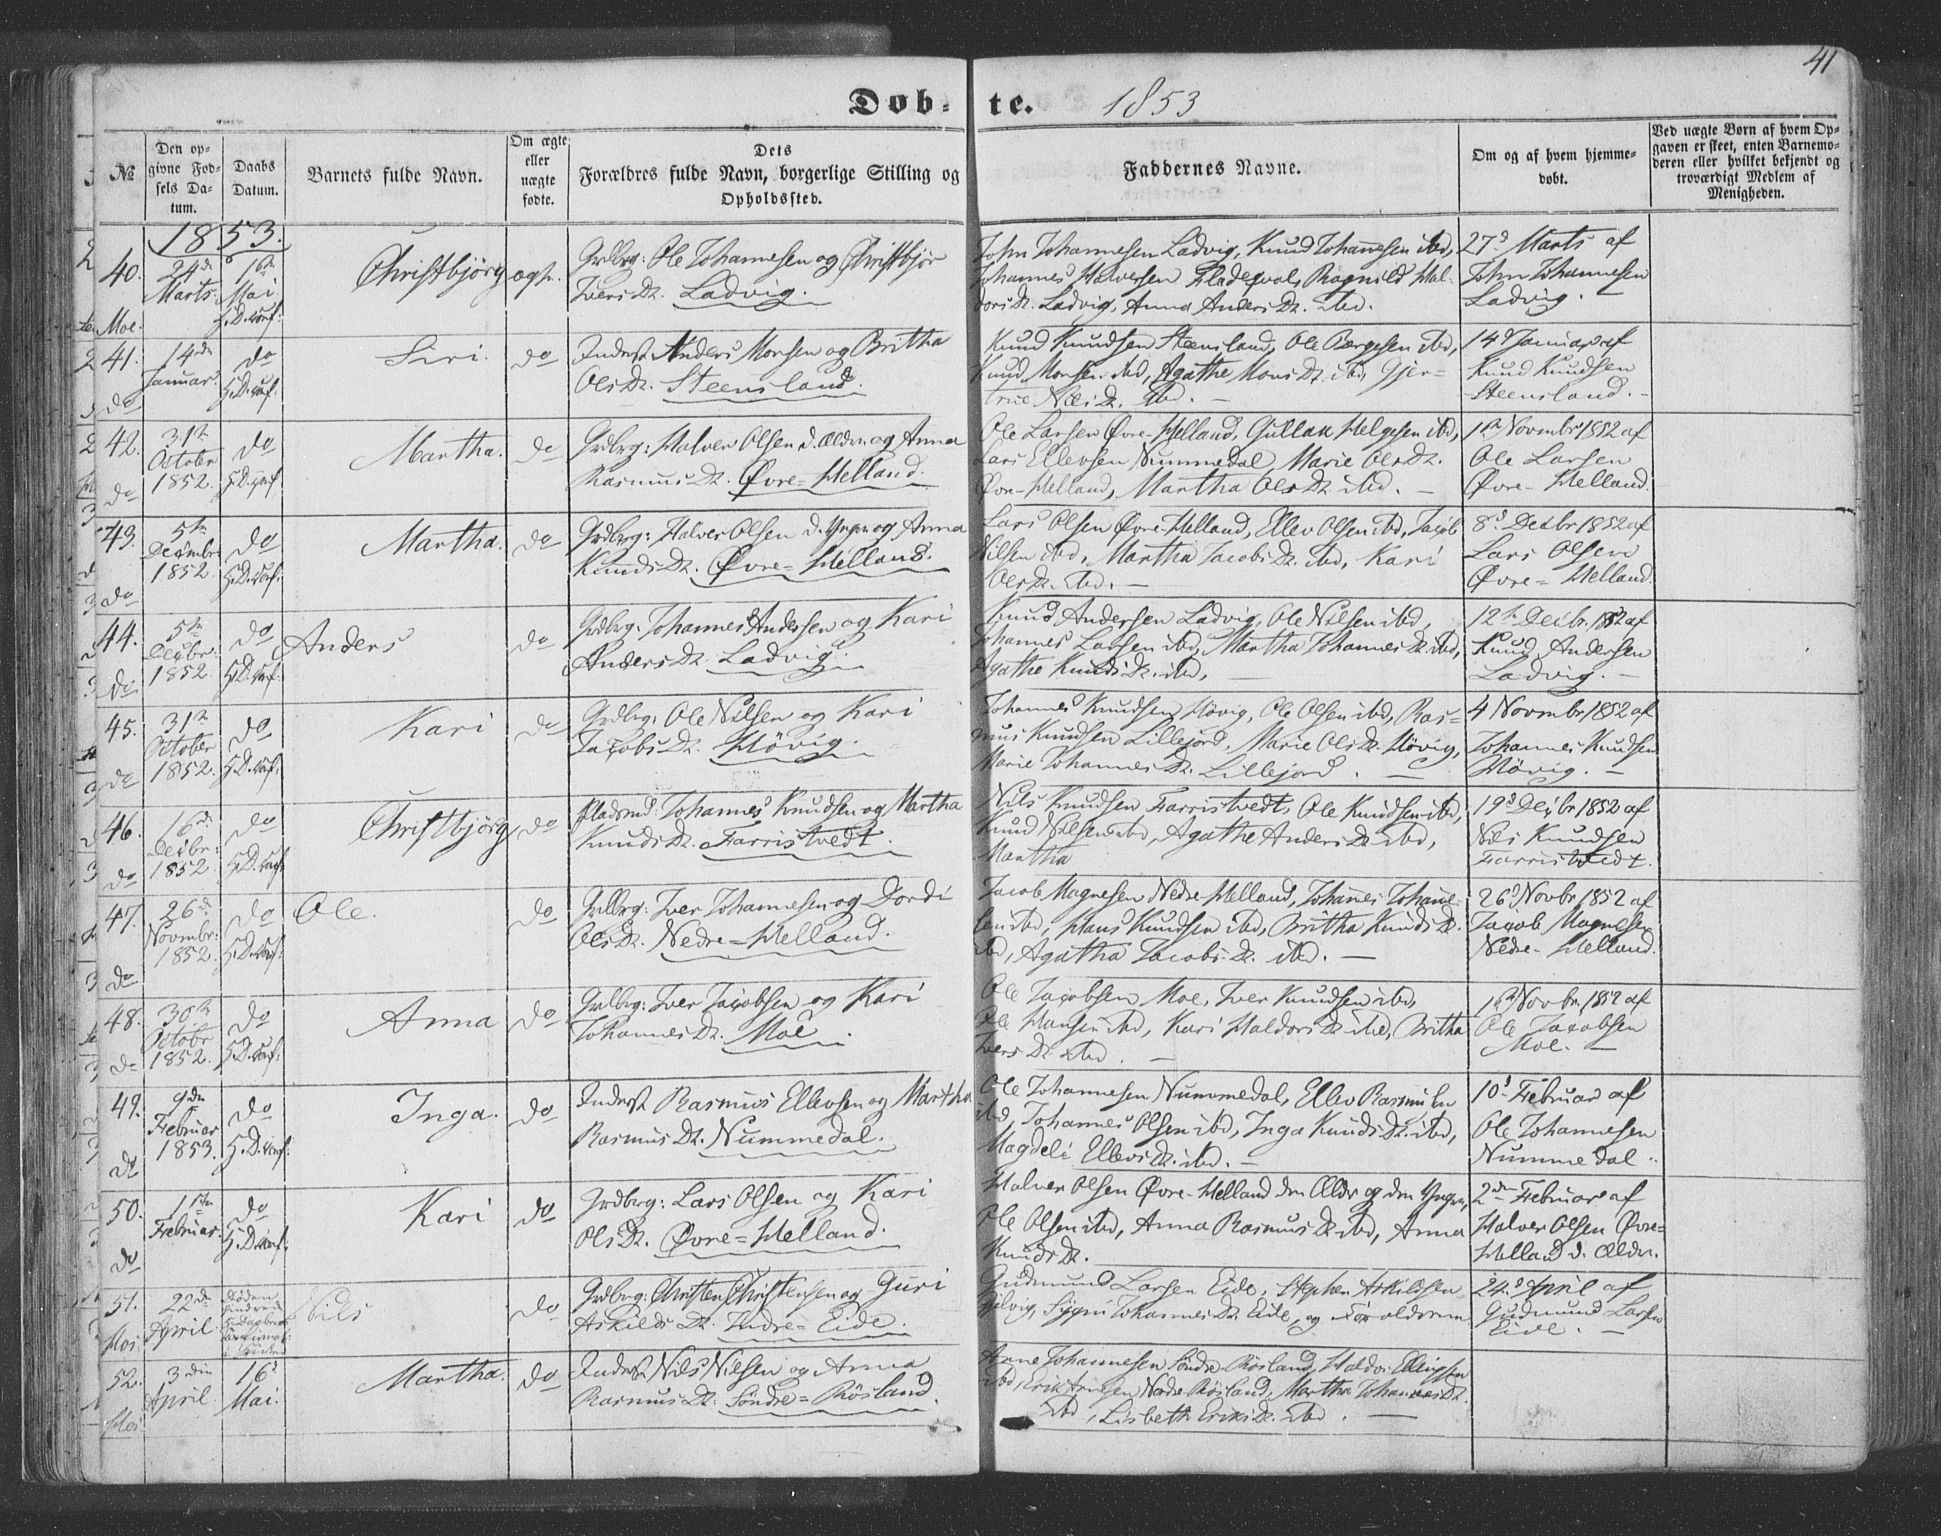 41
Døb- te. 1853
№
Den opgivne Fødsels Datum.
Daabs Datum.
Barnets fulde Navn.
Om ægte eller uægte fødte.
Dets Forældres fulde Navn, borgerlige Stilling og Opholdssted.
Faddernes Navne.
Om og af hvem hjemmedøbt.
Ved uægte Børn af hvem Opgaven er skeet, enten Barnemoderen eller hvilket bekjendt og troværdigt Medlem af Menigheden.
1853.
40. 24de Marts 1ste Mai Christbjørg ægte.
Moe.
Grdbrg: Ole Johannesen og Christbjør
Ivers Dt. Ladvig.
John Johannesen Ladvig, Knud Johannesen ibd,
Johannes Halversen, Ragnild Hal-
dors Dt. Ladvig, Anna Anders Dt. ibd.
27d Marts af
John Johannesen
Ladvig.
41. 14de Januar. do Siri. do
do
Inderst Anders Monsen og Britha
Ols Dt. Steensland.
Knud Knudsen Steensland, Ole Børgesen ibd,
Knud Monsen ibd, Agathe Mons Dt. ibd, Gjer-
true Nils Dt. ibd.
14d Januar af
Knud Knudsen
Steensland.
42. 31te Octobr 1852. do Martha. do
do
Grdbrg: Halver Olsen d. Ældre og Anna
Rasmus Dt. Øvre-Helland.
Ole Larsen Øvre-Helland, Gullak Helgesen ibd,
Lars Ellevsen Nummedal, Marie Ols Dt.
Øvre-Helland, Martha Ols Dt. ibd.
1te Novmbr 1852 af
Ole Larsen
Øvre-Helland.
43. 5te Decbr: 1852. do Martha. do
do
Grdbrg: Halver Olsen d. Yngre og Anna
Knuds Dt. Øvre-Helland.
Lars Olsen Øvre-Helland, Ellev Olsen ibd, Jacob
Nilsen ibd, Martha Jacobs Dt. ibd, Kari
Ols Dt. ibd.
8d Decbr 1852 af
Lars Olsen
Øvre-Helland.
44. 5te Decbr. 1852. do Anders do
do
Grdbrg: Johannes Andersen og Kari
Anders Dt. Ladvig.
Knud Andersen Ladvig, Ole Nilsen ibd,
Johannes Larsen ibd, Martha Johannes Dt. ibd,
Agathe Knuds Dt. ibd,
12te Decbr. 1852 af
Knud Andersen
Ladvig.
45. 31te October 1852. do Kari do
do
Grdbrg: Ole Nilsen og Kari
Jacobs Dt. Høvig.
Johannes Knudsen Høvig, Ole Olsen ibd, Ras-
mus Knudsen Lillejord, Marie Ols Dt. Høvig,
Marie Johannes Dt. Lillejord.
4 Novmbr. 1852 af
Johannes Knudsen
Høvig.
46. 16de Decbr: 1852. do Christbjørg, do
do
Pladsmd: Johannes Knudsen og Martha
Knuds Dt. Farristvedt.
Nils Knudsen Farristvedt, Ole Knudsen ibd,
Knud Nilsen ibd, Agathe Anders Dt. ibd,
Martha
19d Decbr 1852 af
Nils Knudsen
Farristvedt.
47. 26de Novmbr: 1852. do Ole. do
do
Grdbrg: Iver Johannesen og Dordi
Ols Dt. Nedre-Helland.
Jacob Magnesen Nedre Helland, Johannes Johanne-
sen ibd, Hans Knudsen ibd, Britha Knuds Dt.
ibd, Agatha Jacobs Dt. ibd.
26d Novbr 1852 af
Jacob Magnesen
Nedre-Helland.
48. 30te Octobr 1852. do Anna do
do
Grdbrg: Iver Jacobsen og Kari
Johannes Dt. Moe.
Ole Jacobsen Moe, Iver Knudsen ibd,
Ole Hansen ibd, Kari Haldors Dt. ibd, Britha
Ivers Dt. ibd.
Novbr. 1852 af
Ole Jacobsen
Moe.
49. 9de Februar 1853. do Inga. do
do
Inderst Rasmus Ellevsen og Martha
Rasmus Dt. Nummedal.
Ole Johannesen Nummedal, Ellev Rasmusen
ibd, Johannes Olsen ibd, Inga Knuds Dt. ibd,
Magdeli Ellevs Dt. ibd.
10d Februar af
Ole Johannesen
Nummedal.
50. 1ste Februar. do Kari do
do
Grdbrg: Lars Olsen og Kari
Ols Dt. Øvre-Helland.
Halver Olsen Øvre-Helland den Ældr og den Yngre,
Ole Olsen ibd, Anna Rasmus Dt. ibd, Anna
Knuds Dt.
2den Februar af
Halver Olsen Øvre-
Helland d. Ældr.
51. 22de April Nils do
Grdbrg: Christen Christensen og Guri
Askilds Dt. Indre-Eide.
Gudmund Larsen Eide, Stephen Askildsen
Sygni Johannes Dt. Eide, og Forældrene
24d April af
Gudmund Larsen
Eide.
52. 3die April 16d Mai. Martha. do
Inderst Nils Nilsen og Anna
Rasmus Dt. Søndre-Røsland.
Arne Johannesen Søndre Røsland, Haldor Ellingsen
ibd, Erik Arnesen Nedre Røsland, Martha Johannes Dt.
ibd, Lisbeth Eriks Dt. ibd.